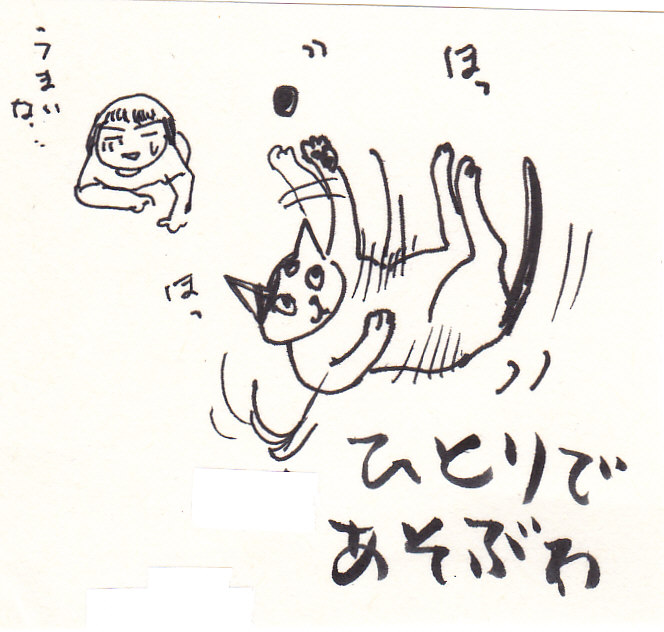 うまい
な…
ほっ
ほっ
ひとりで
あそぶわ